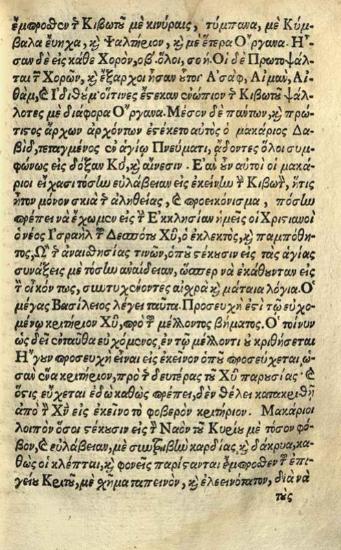 ἔμπροσθεν τ̃ Κιβωτοῦ μὲ κινύραις, τύμπανα, μὲ Κύμ-
βαλα ἔυηχα, κ̀ Ψαλτήριον, κ̀ με ἕτερα Ὄργανα. Ἦ-
σαν δὲ εἰς κάθε Χορὸν, οβ. ὅλοι, σ ο ή. Οἱ δὲ Πρωτοψάλ-
ται τ̃ Χορῶν, κ̀ ἔξαρχοι ἦσαν ἔτοι Ἀσάφ, Αἰμὰν, Αἰ-
θὰμ, ϛ Ἰδιθούμ οἵτινες ἔστεκαν ἐνώπιον τ̃ Κιβωτοῦ ψάλ-
λοντες μὲ διάφορα Ὄργανα. Μέσον δὲ πάντων, κ̀ πρώ-
τιστος ἄρχων ἀρχόντων ἐστέκετο αὐτὸς ὁ μακάριος Δα-
βὶδ, τεταγμένος ἐν ἁγίῳ Πνεύματι, ᾄδοντες ὅλοι συμ-
φώνως εἰς δόξαν Κυ, κ̀ αἴνεσιν. Ἐὰν οὖν αὐτοὶ οἱ μακά-
ριοι εἴχασι τόσην ευλάβειαν εἰς ἐκείνην τ̀ Κιβωτ, ἥτις
ἦτον μόνον σκιὰ τ̃ ἀληθείας, κ̀ προεικόνισμα, πόσην
πρέπει νὰ ἔχωμεν εἰς τ̀ Ἐκκλησίαν ἡμεῖς οἱ Χριστιανοὶ
ὁ νέος Ἰσραὴλ τ̃ Δεσπότου Χυ, ὁ ἐκλεκτὸς, κ̀ παμπόθη-
τος, Ὢ τ̃ ἀναισθησίας τινῶν, ὁποῦ στέκουσιν εἰς τὰς ἁγίας
συνάξεις μὲ τόσην ἀναίδειαν, ὥσπερ νὰ ἐκάθηνταν εἰς
τ̀ οἶκόν τως, συντυχαίνοντες αἰσχρὰ κ̀ μάταια λόγια. Ὁ
μέγας Βασίλειος λέγει ταῦτα. Προσευχή ἐστι τῷ εὐχο-
μένῳ κριτήριον Χυ, πρὸ τ̃ μέλλοντος βήματος. Ὁ τοίνυν
ὡς δεῖ ἐνταῦθα εὐχόμενος ἐν τῷ μέλλοντι οὐ κριθήσεται
Ἤγουν προσευχὴ εἶναι εἰς ἐκεῖνον ὁποῦ προσεύχεται, ὡ-
σὰν ἕνα κριτήριον, πρὸ τ̃ δευτέρας τ̃ Χυ παρουσίας· ϛ
ὅστις εὔχεται ἐδῶ καθὼς πρέπει, δὲν θέλει κατακριθῆ
ἀπὸ τ̀ Χν εἰς ἐκεῖνο τὸ φοβερὸν κριτήριον. Μακάριοι
λοιπὸν ὅσοι στέκουσιν εἰς τ̀ Ναὸν τοῦ Κυρίου μὲ τόσον φό-
βον, ϛ εὐλάβειαν, μὲ συντριβὴν καρδίας, κ̀ δάκρυα, κα-
θὼς οἱ κλέπται, κ̀ φονεῖς παρίστανται ἔμπροσθεν τ̃ ἐπι-
γείου Κριτοῦ, μὲ χῆμα ταπεινὸν, κ̀ ἐλεεινότατον, διὰ νὰ
τοὺς